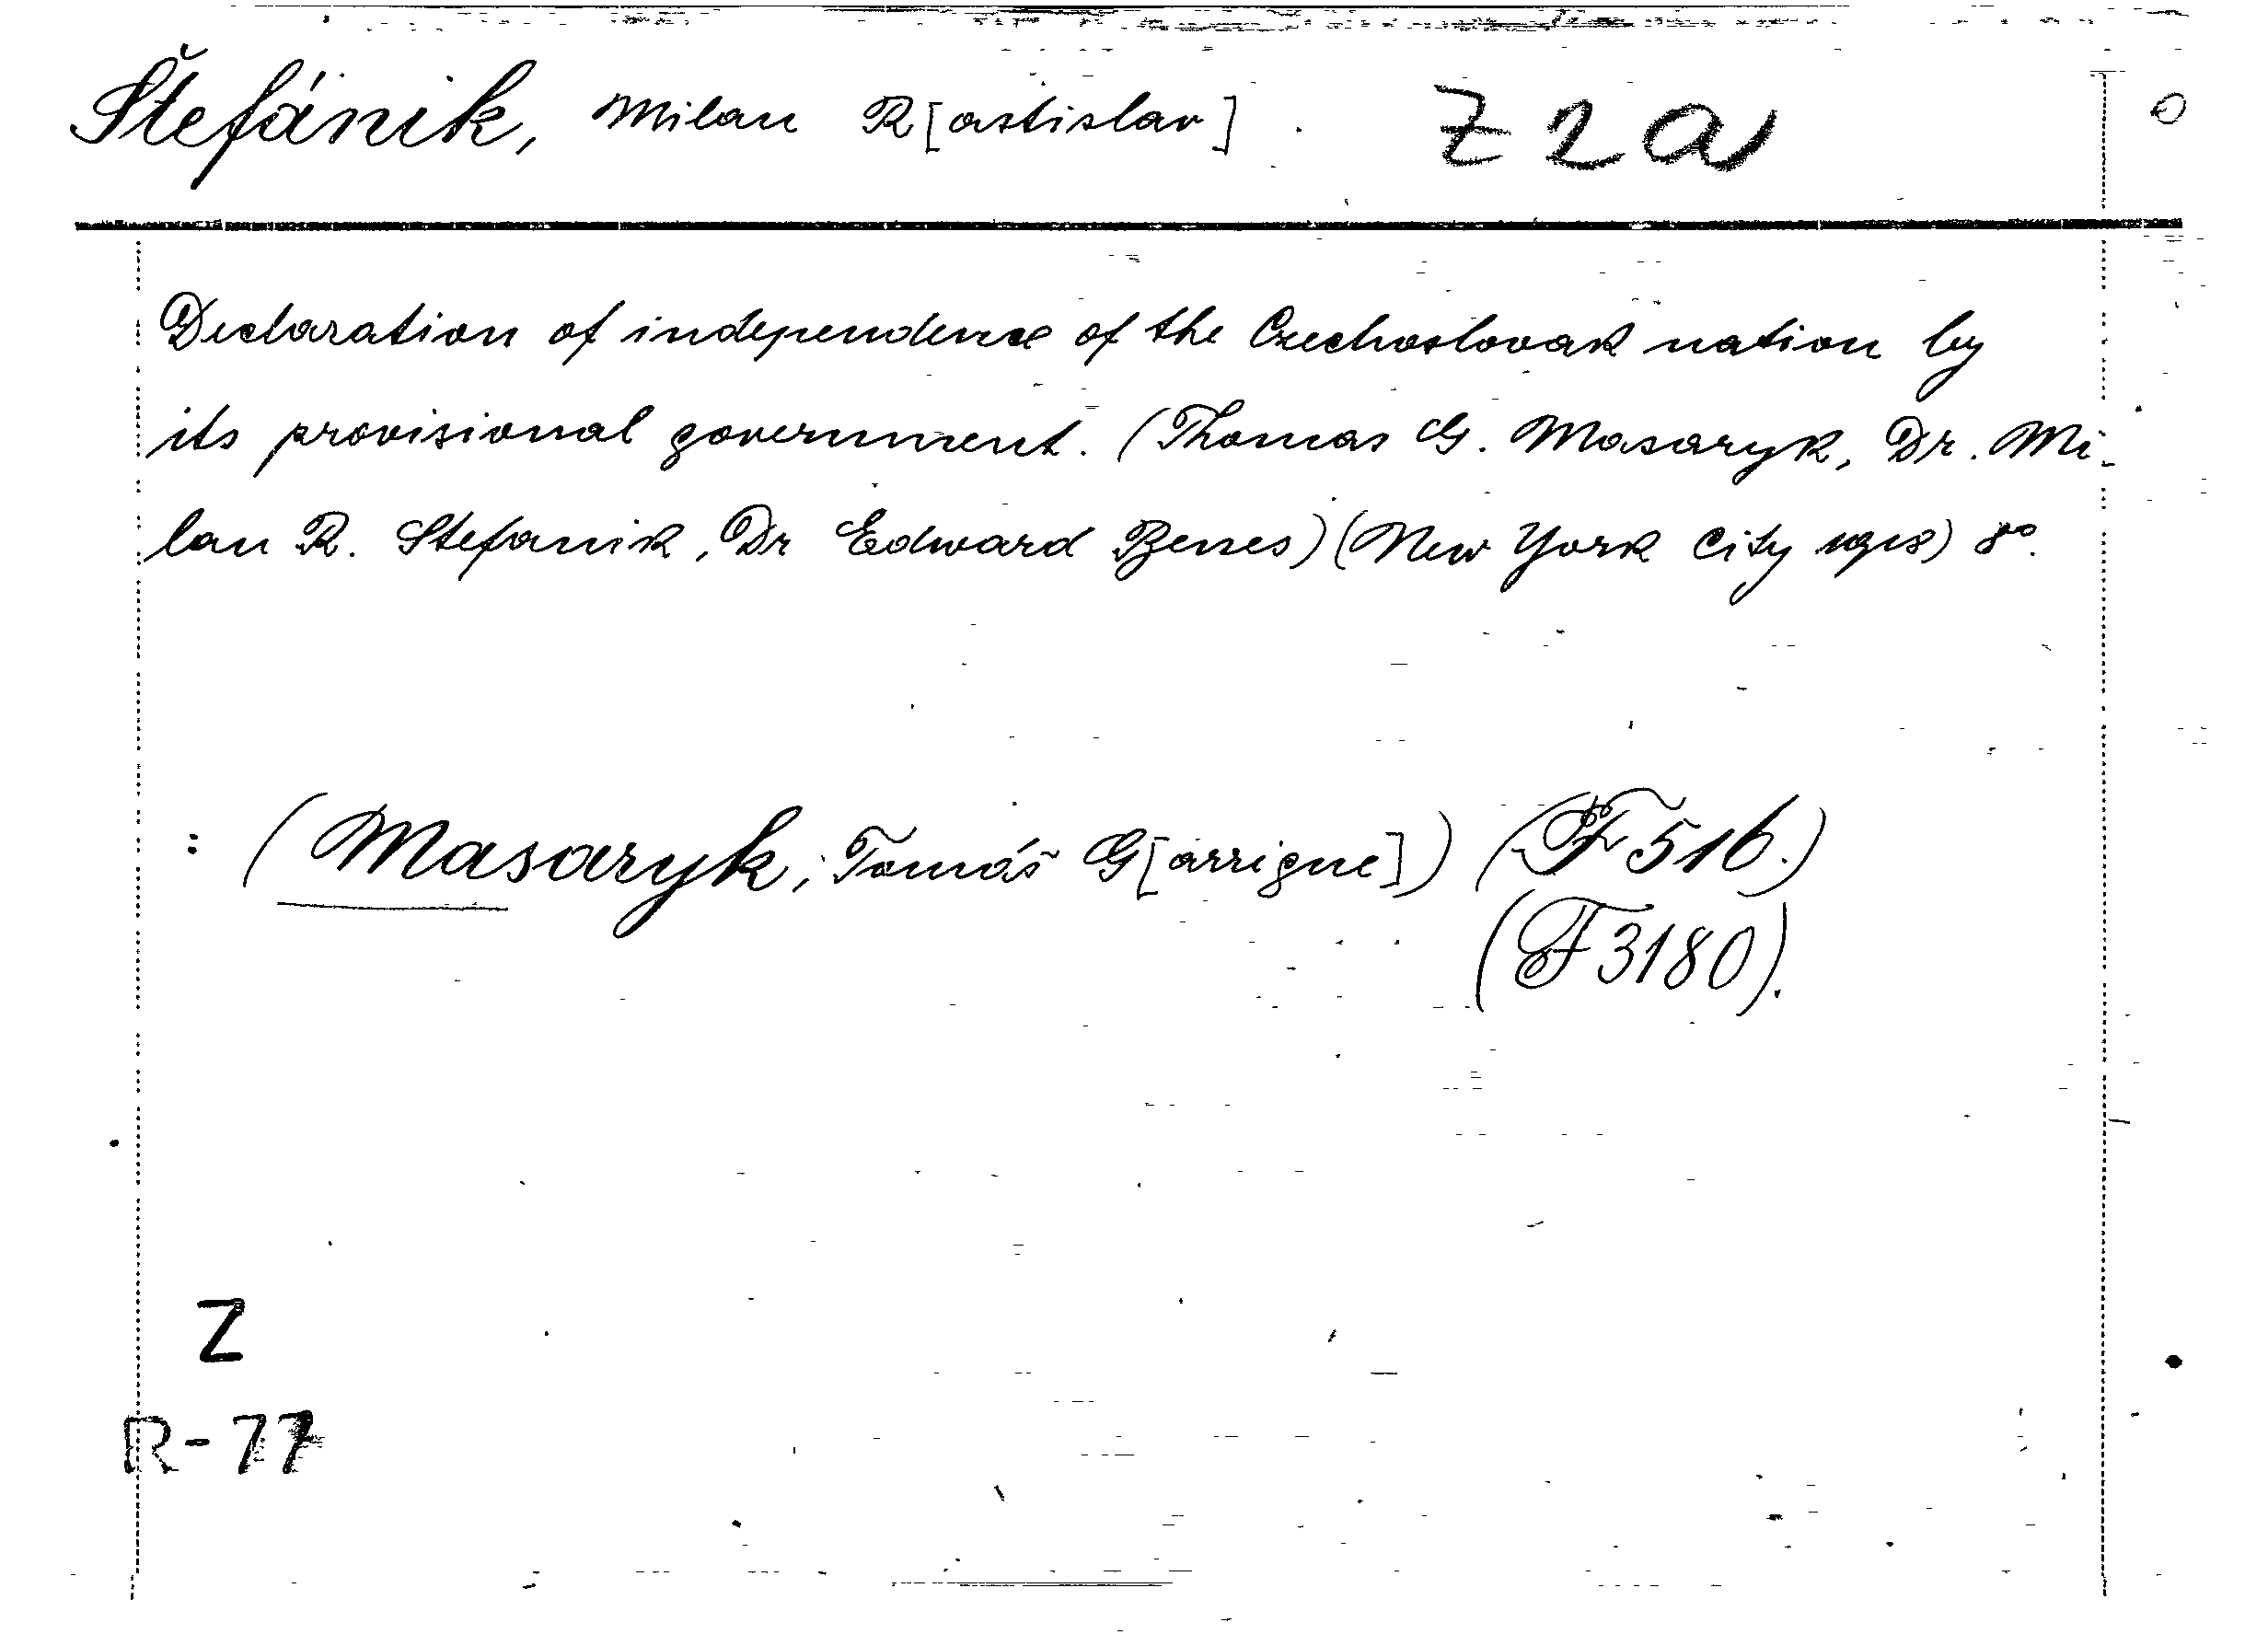 Štefánik, Milan R[astislav]. Z 2 a
Declaration of independence of the Czechoslovak nation by
its provisional government. (Thomas G. Masaryk, Dr. Mi-
lan R. Stefanik, Dr Edward Benes) (New York City 1918) 8°.
: (Masaryk, Tomáš G[arrigue]) (F 516.)
(F 3180).
Z
R-77